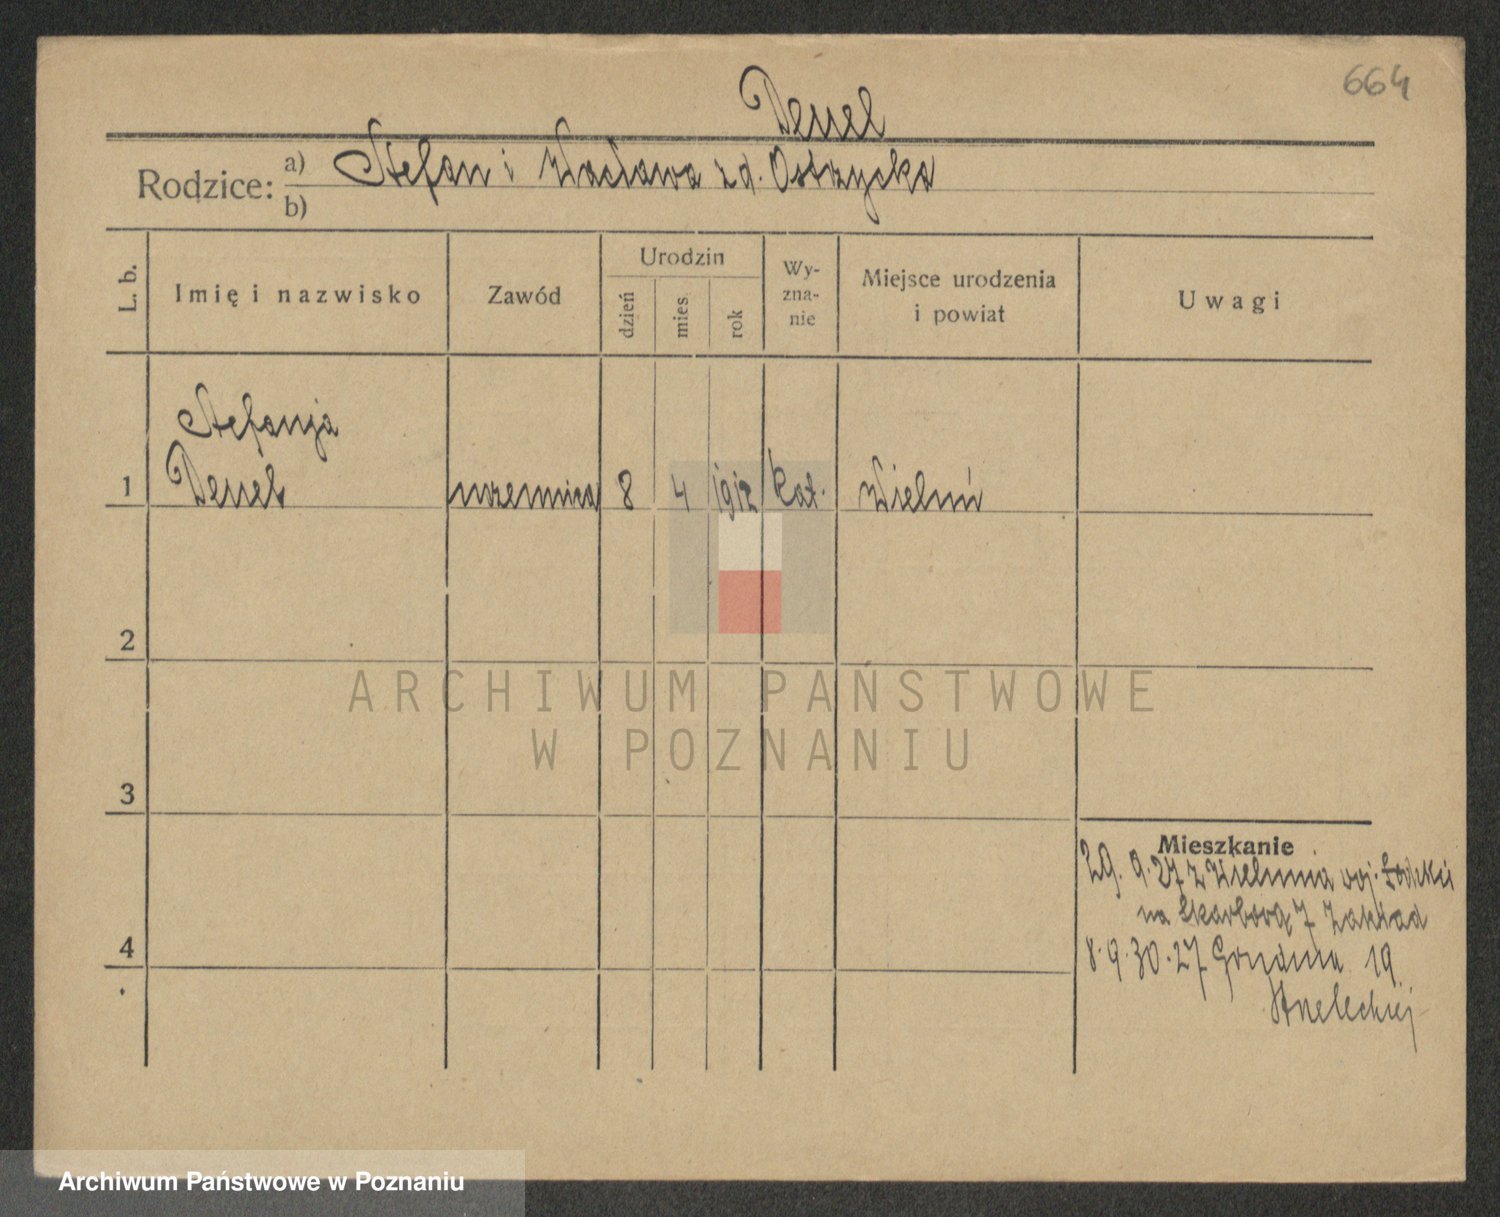 664
Denel
Rodzice: a) Stefan i Wacława z d. Ostrzycka
b)
L. b.
Imię i nazwisko
Zawód
Urodzin
dzień
mies.
rok
Wy-
zna-
nie
Miejsce urodzenia
i powiat
Uwagi
Stefanja
1 Denel 8 4 1912 kat. Wieluń
2
ARCHIWUM PAŃSTWOWE
W POZNANIU
3
Mieszkanie
29. 9. 27 z Wielunia woj. Łódzkie
na Skarbową 7 Zakład
4
8.9.30.27 Grudnia 19
Strzeleckiej
Archiwum Państwowe w Poznaniu